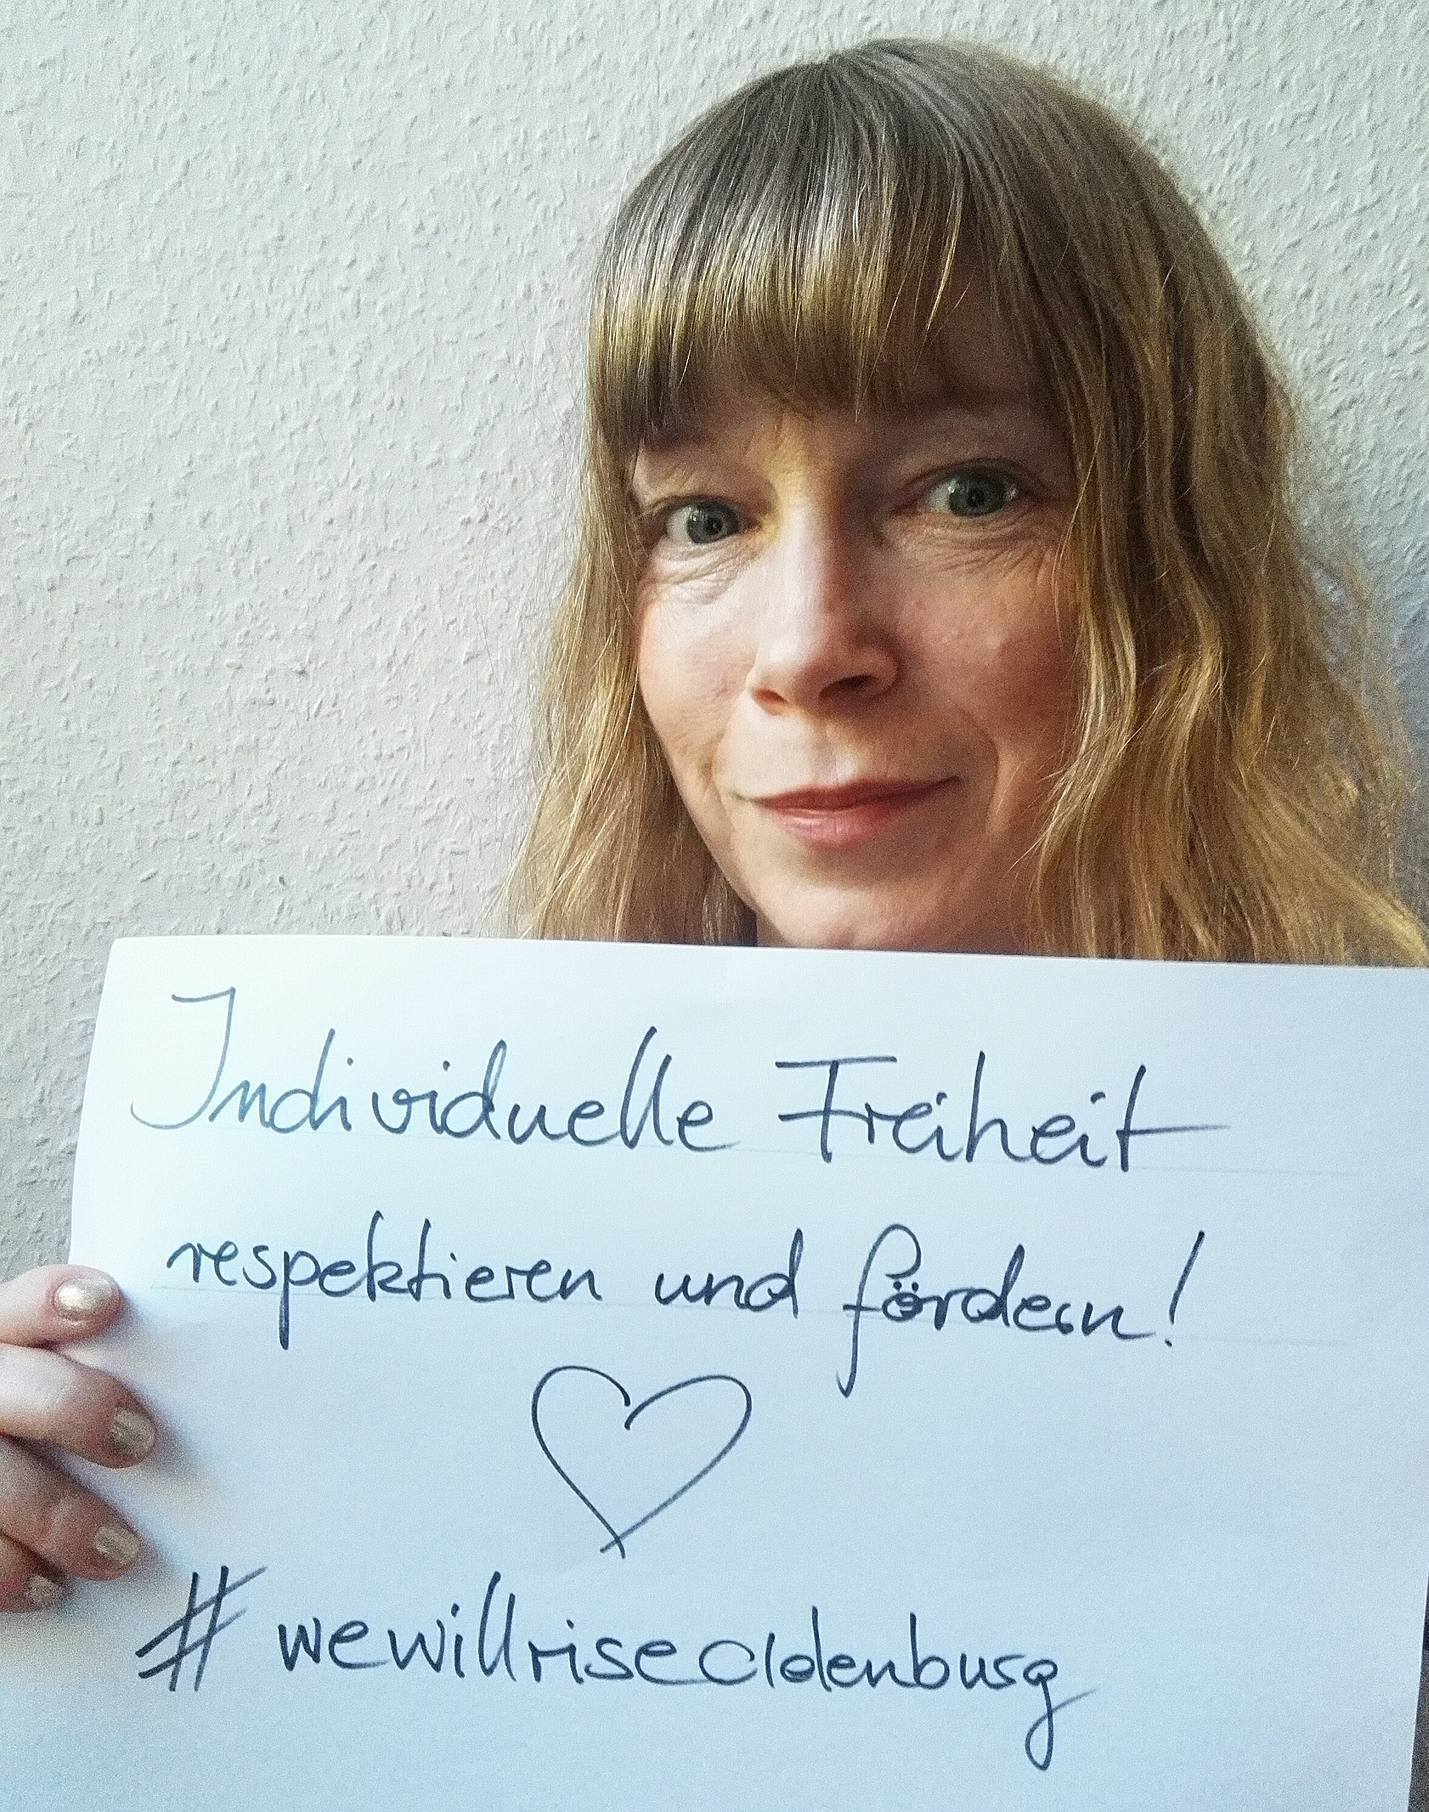 Individuelle Freiheit
respektieren und fördern!
#wewillriseoldenburg